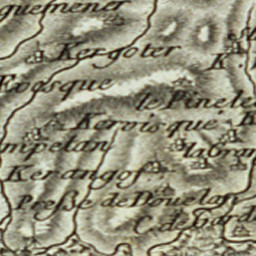 guesmener
Kergoter
Evosque
le Pinele
Kervisqué
mpelan
labran
Kerangof
Presse de Douelan
C. de